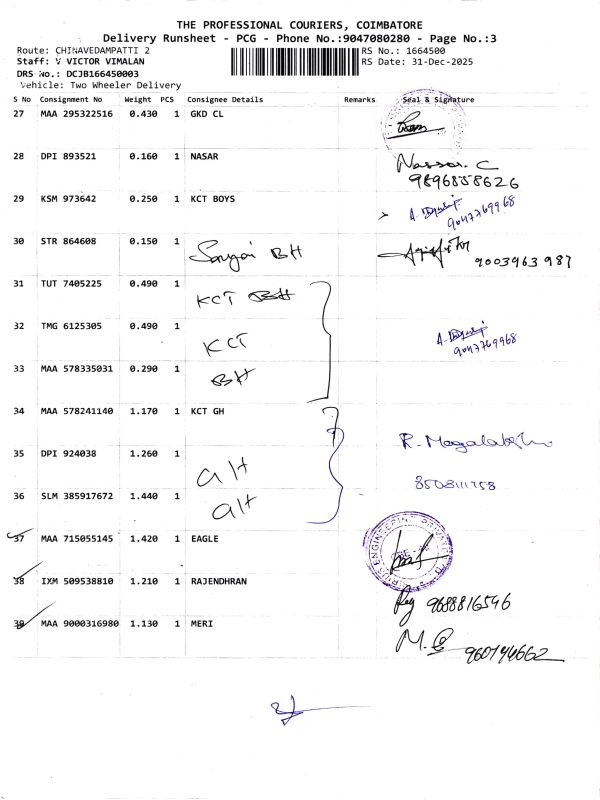 THE PROFESSIONAL COURIERS, COIMBATORE
Delivery Runsheet - PCG - Phone No.:9047080280 - Page No.:3
Route: CHINAVEDAMPATTI 2
RS No.: 1664500
Staff: V VICTOR VIMALAN
RS Date: 31-Dec-2025
DRS No.: DCJB166450003
Vehicle: Two Wheeler Delivery
S No Consignment No Weight PCS Consignee Details Remarks Seal & Signature
27 MAA 295322516 0.430 1 GKD CL
28 DPI 893521 0.160 1 NASAR Nassar. C
9896858626
29 KSM 973642 0.250 1 KCT BOYS
9047769968
30 STR 864608 0.150 1 BH
9003963987
31 TUT 7405225 0.490 1 KCT BH
32 TMG 6125305 0.490 1 KCT
9047769968
33 MAA 578335031 0.290 1 BH
34 MAA 578241140 1.170 1 KCT GH
35 DPI 924038 1.260 1 GH
36 SLM 385917672 1.440 1 GH
37 MAA 715055145 1.420 1 EAGLE
38 IXM 509538810 1.210 1 RAJENDHRAN
9688816546
39 MAA 9000316980 1.130 1 MERI